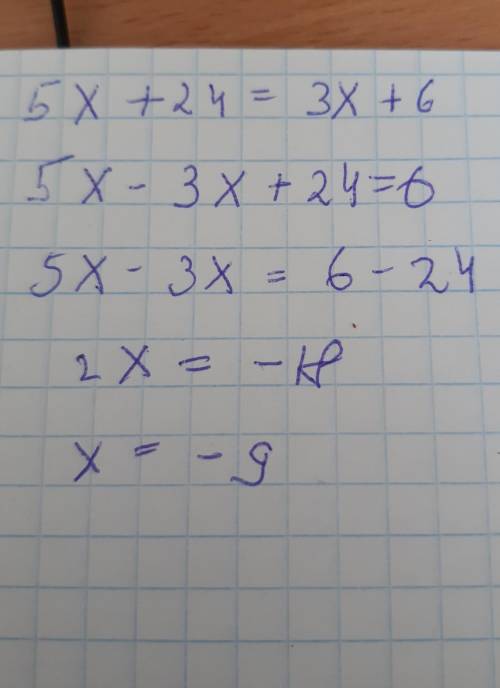 5x + 24 = 3x + 6
5x - 3x + 24 = 6
5x - 3x = 6 - 24
2x = -18
x = -9